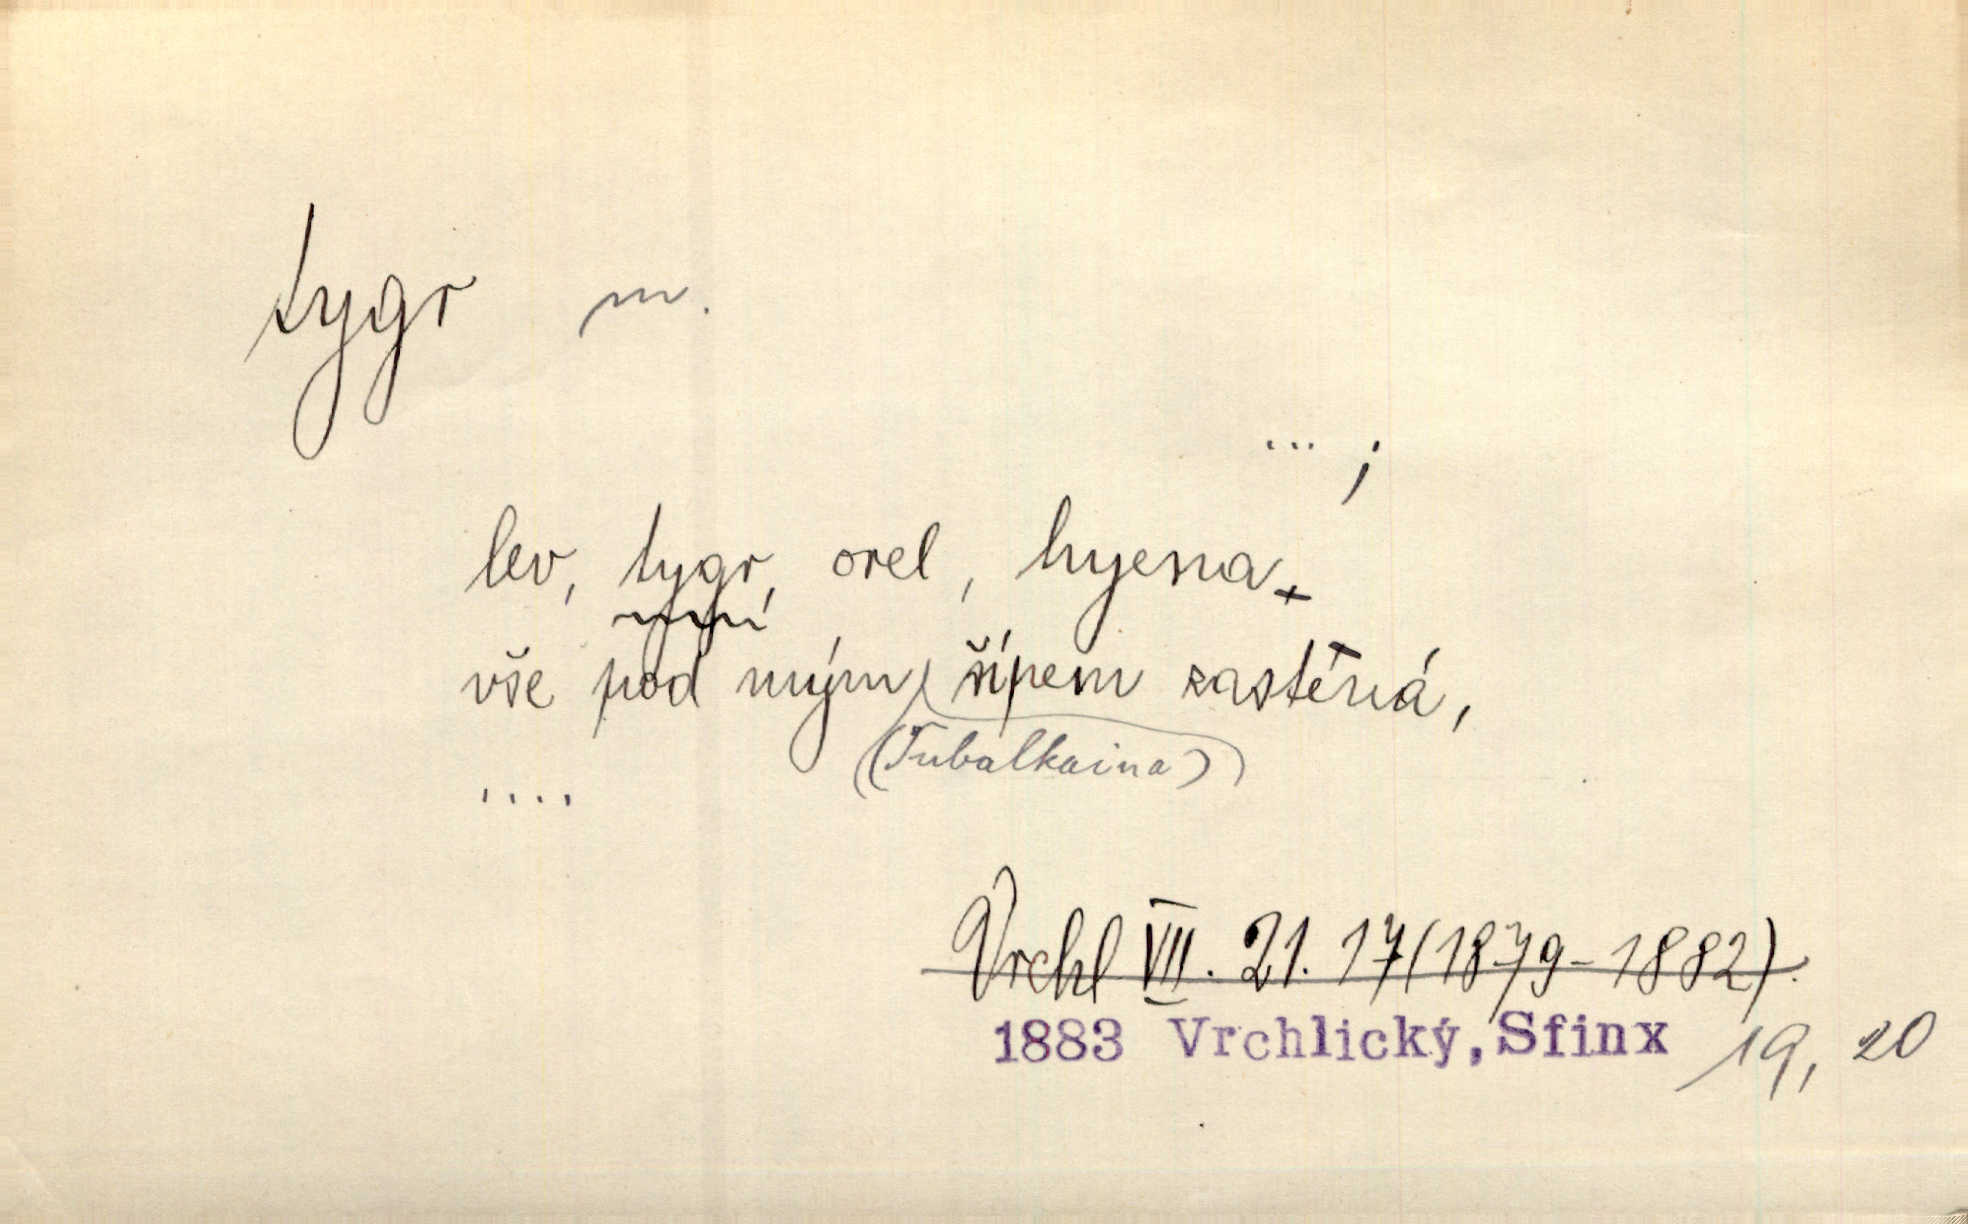 tygr m.
... ;
lev, tygr, orel, hyena
vše pod mým šípem zasténá,
(Tubalkaina)
....
Vrchl VII. 21. 17 (1879-1882).
1883 Vrchlický, Sfinx 19, 20